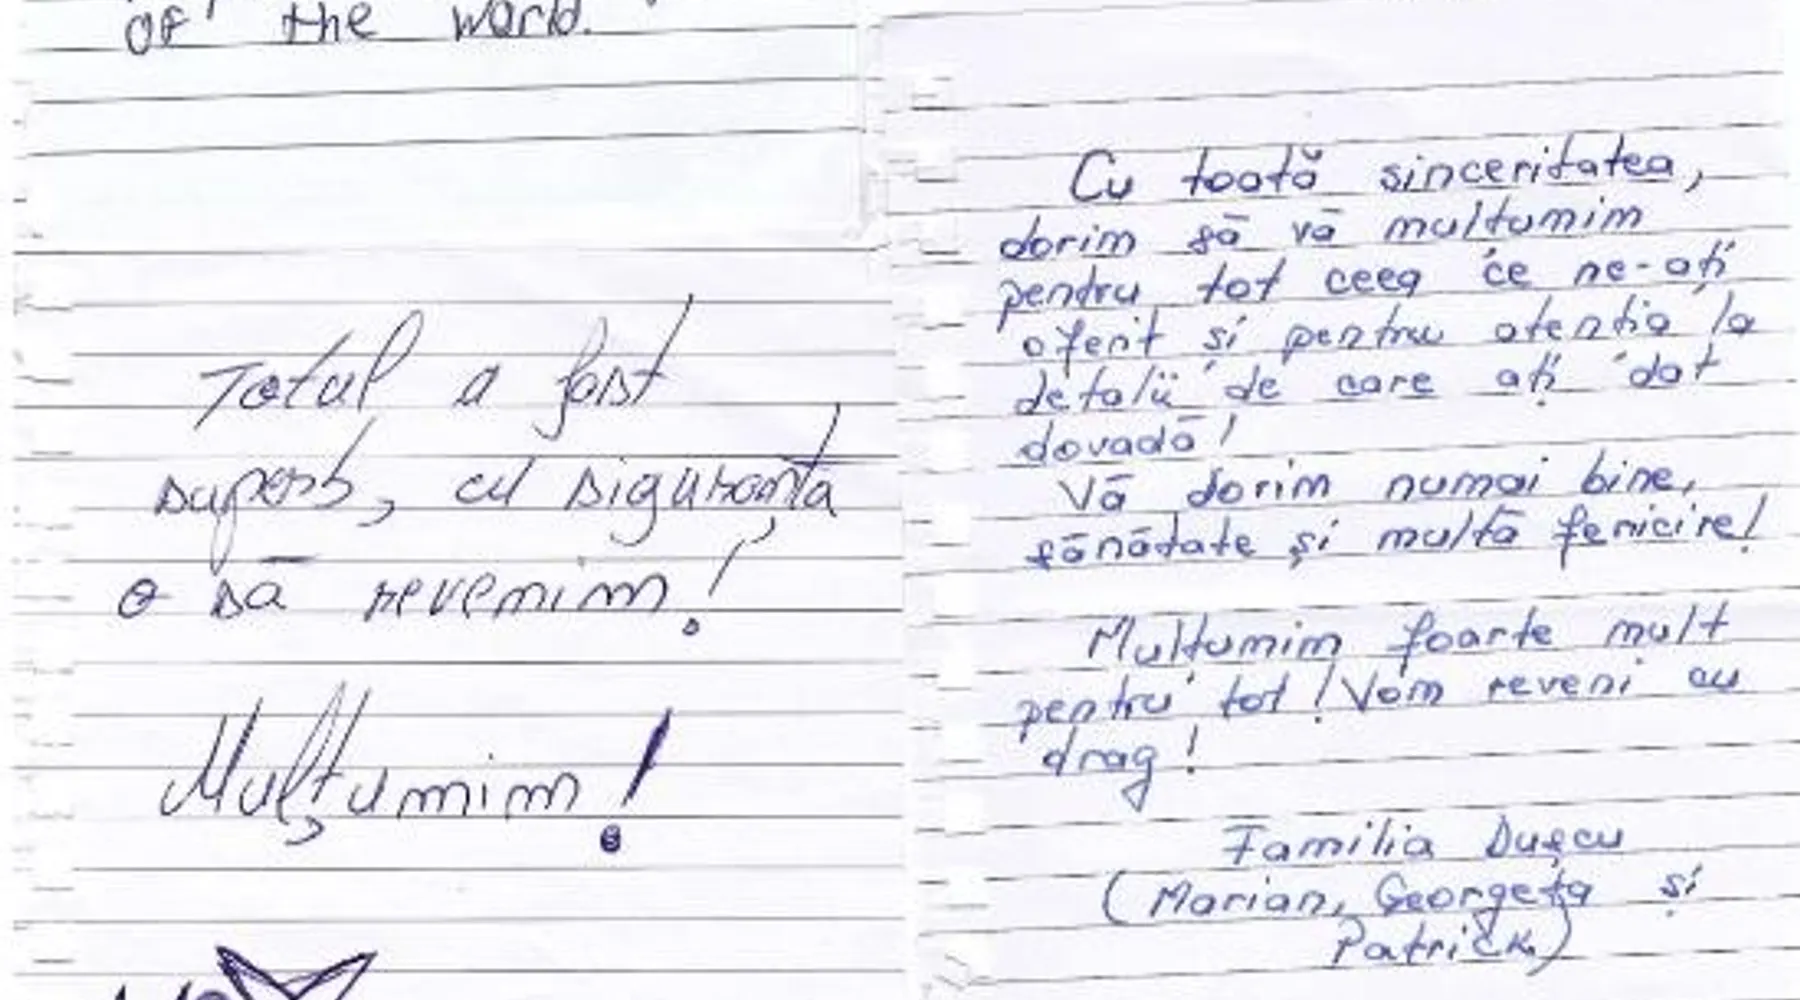 of the world.
Totul a fost
superb, cu siguranța
o să revenim!
Mulțumim!
Cu toată sinceritatea,
dorim să vă multumim
pentru tot ceea ce ne-ați
oferit și pentru atenția la
detalii de care ați dat
dovadă!
Vă dorim numai bine,
sănătate și multă fericire!
Multumim foarte mult
pentru tot! Vom reveni cu
drag!
Familia Dușcu
(Marian, Georgeta și
Patrick)